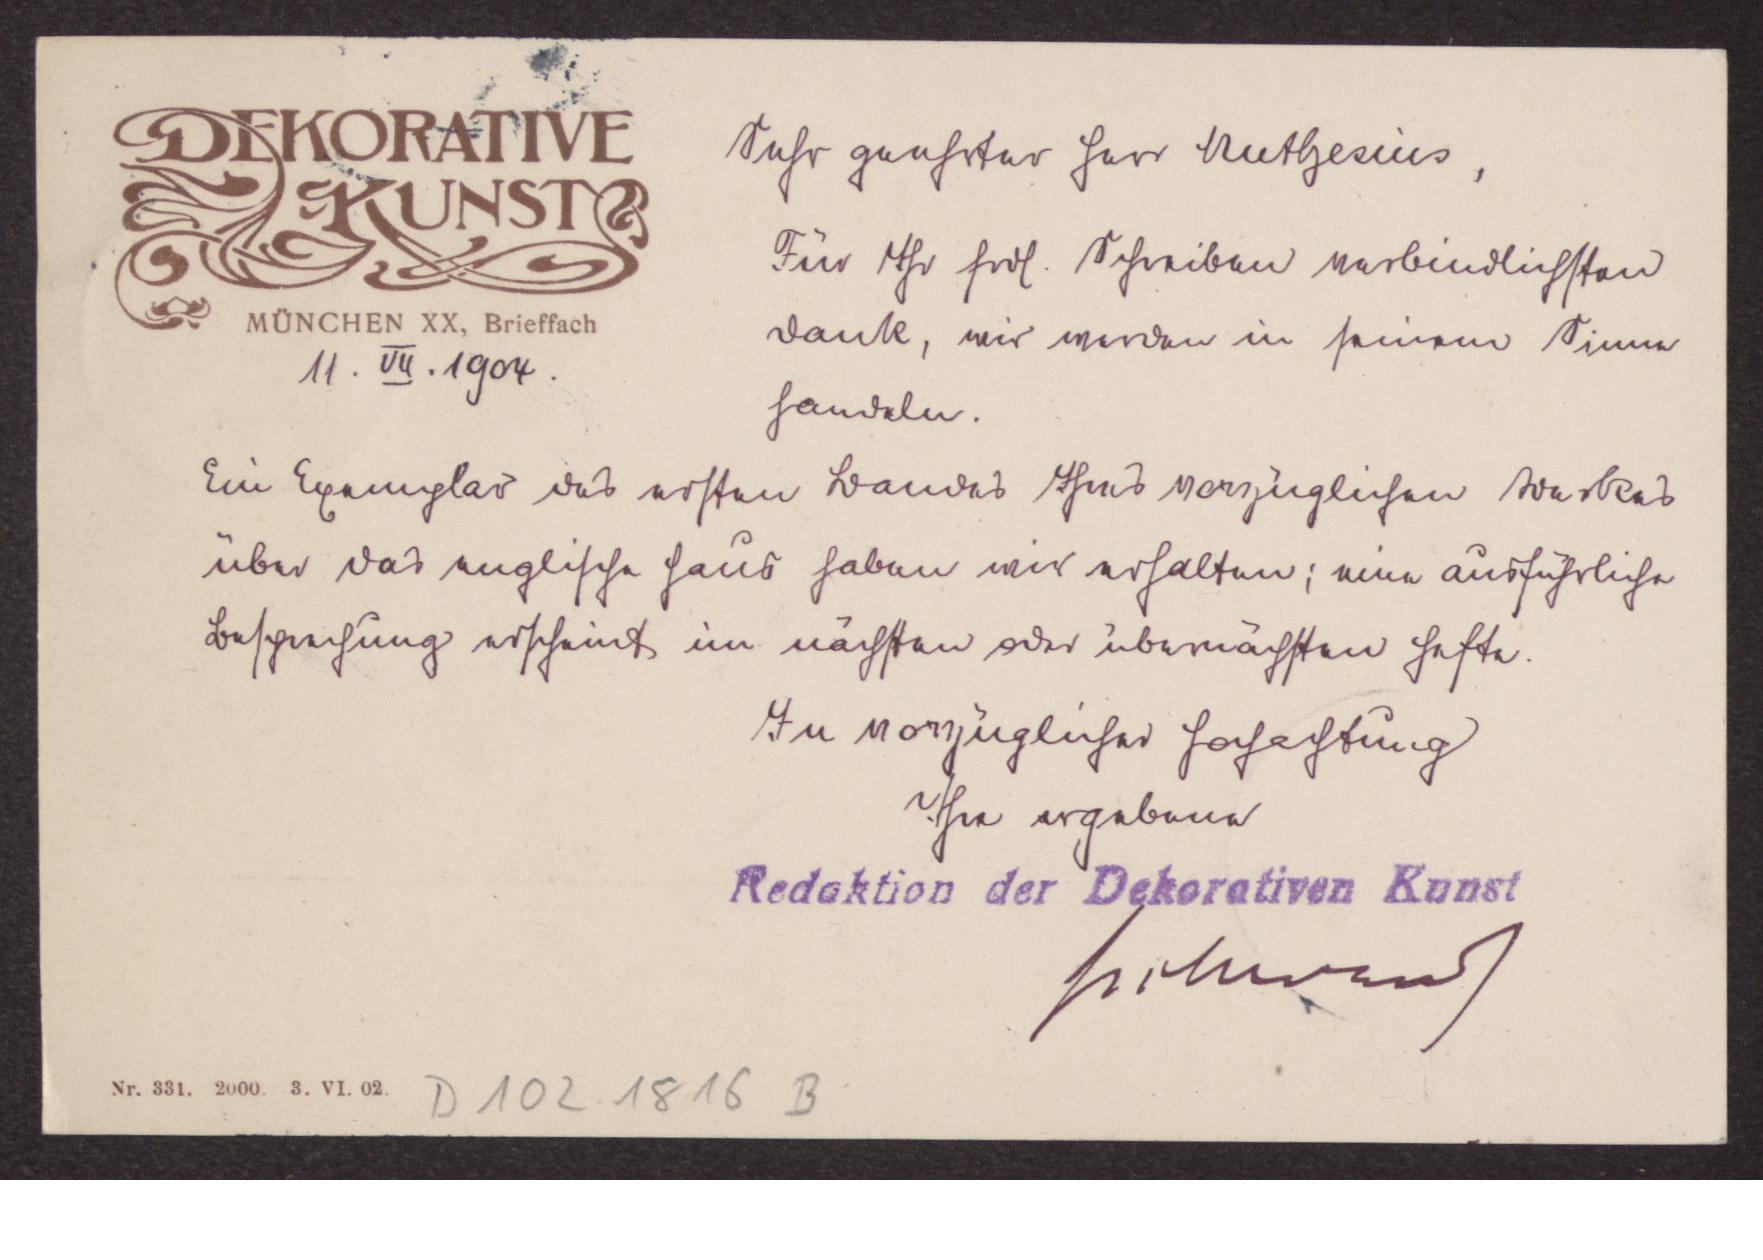 DEKORATIVE
KUNST
MÜNCHEN XX, Brieffach
11. VII. 1904.
Sehr geehrter Herr Muthesius,
Für Ihr frdl. Schreiben verbindlichsten
Dank, wir werden in seinem Sinne
handeln.
Ein Exemplar des ersten Bandes Ihres vorzüglichen Werkes
über das englische Haus haben wir erhalten; eine ausführliche
Besprechung erscheint im nächsten oder übernächsten Hefte.
In vorzüglicher Hochachtung
Ihre ergebene
Redaktion der Dekorativen Kunst
Nr. 331. 2000. 3. VI. 02.
D 102 1816 B